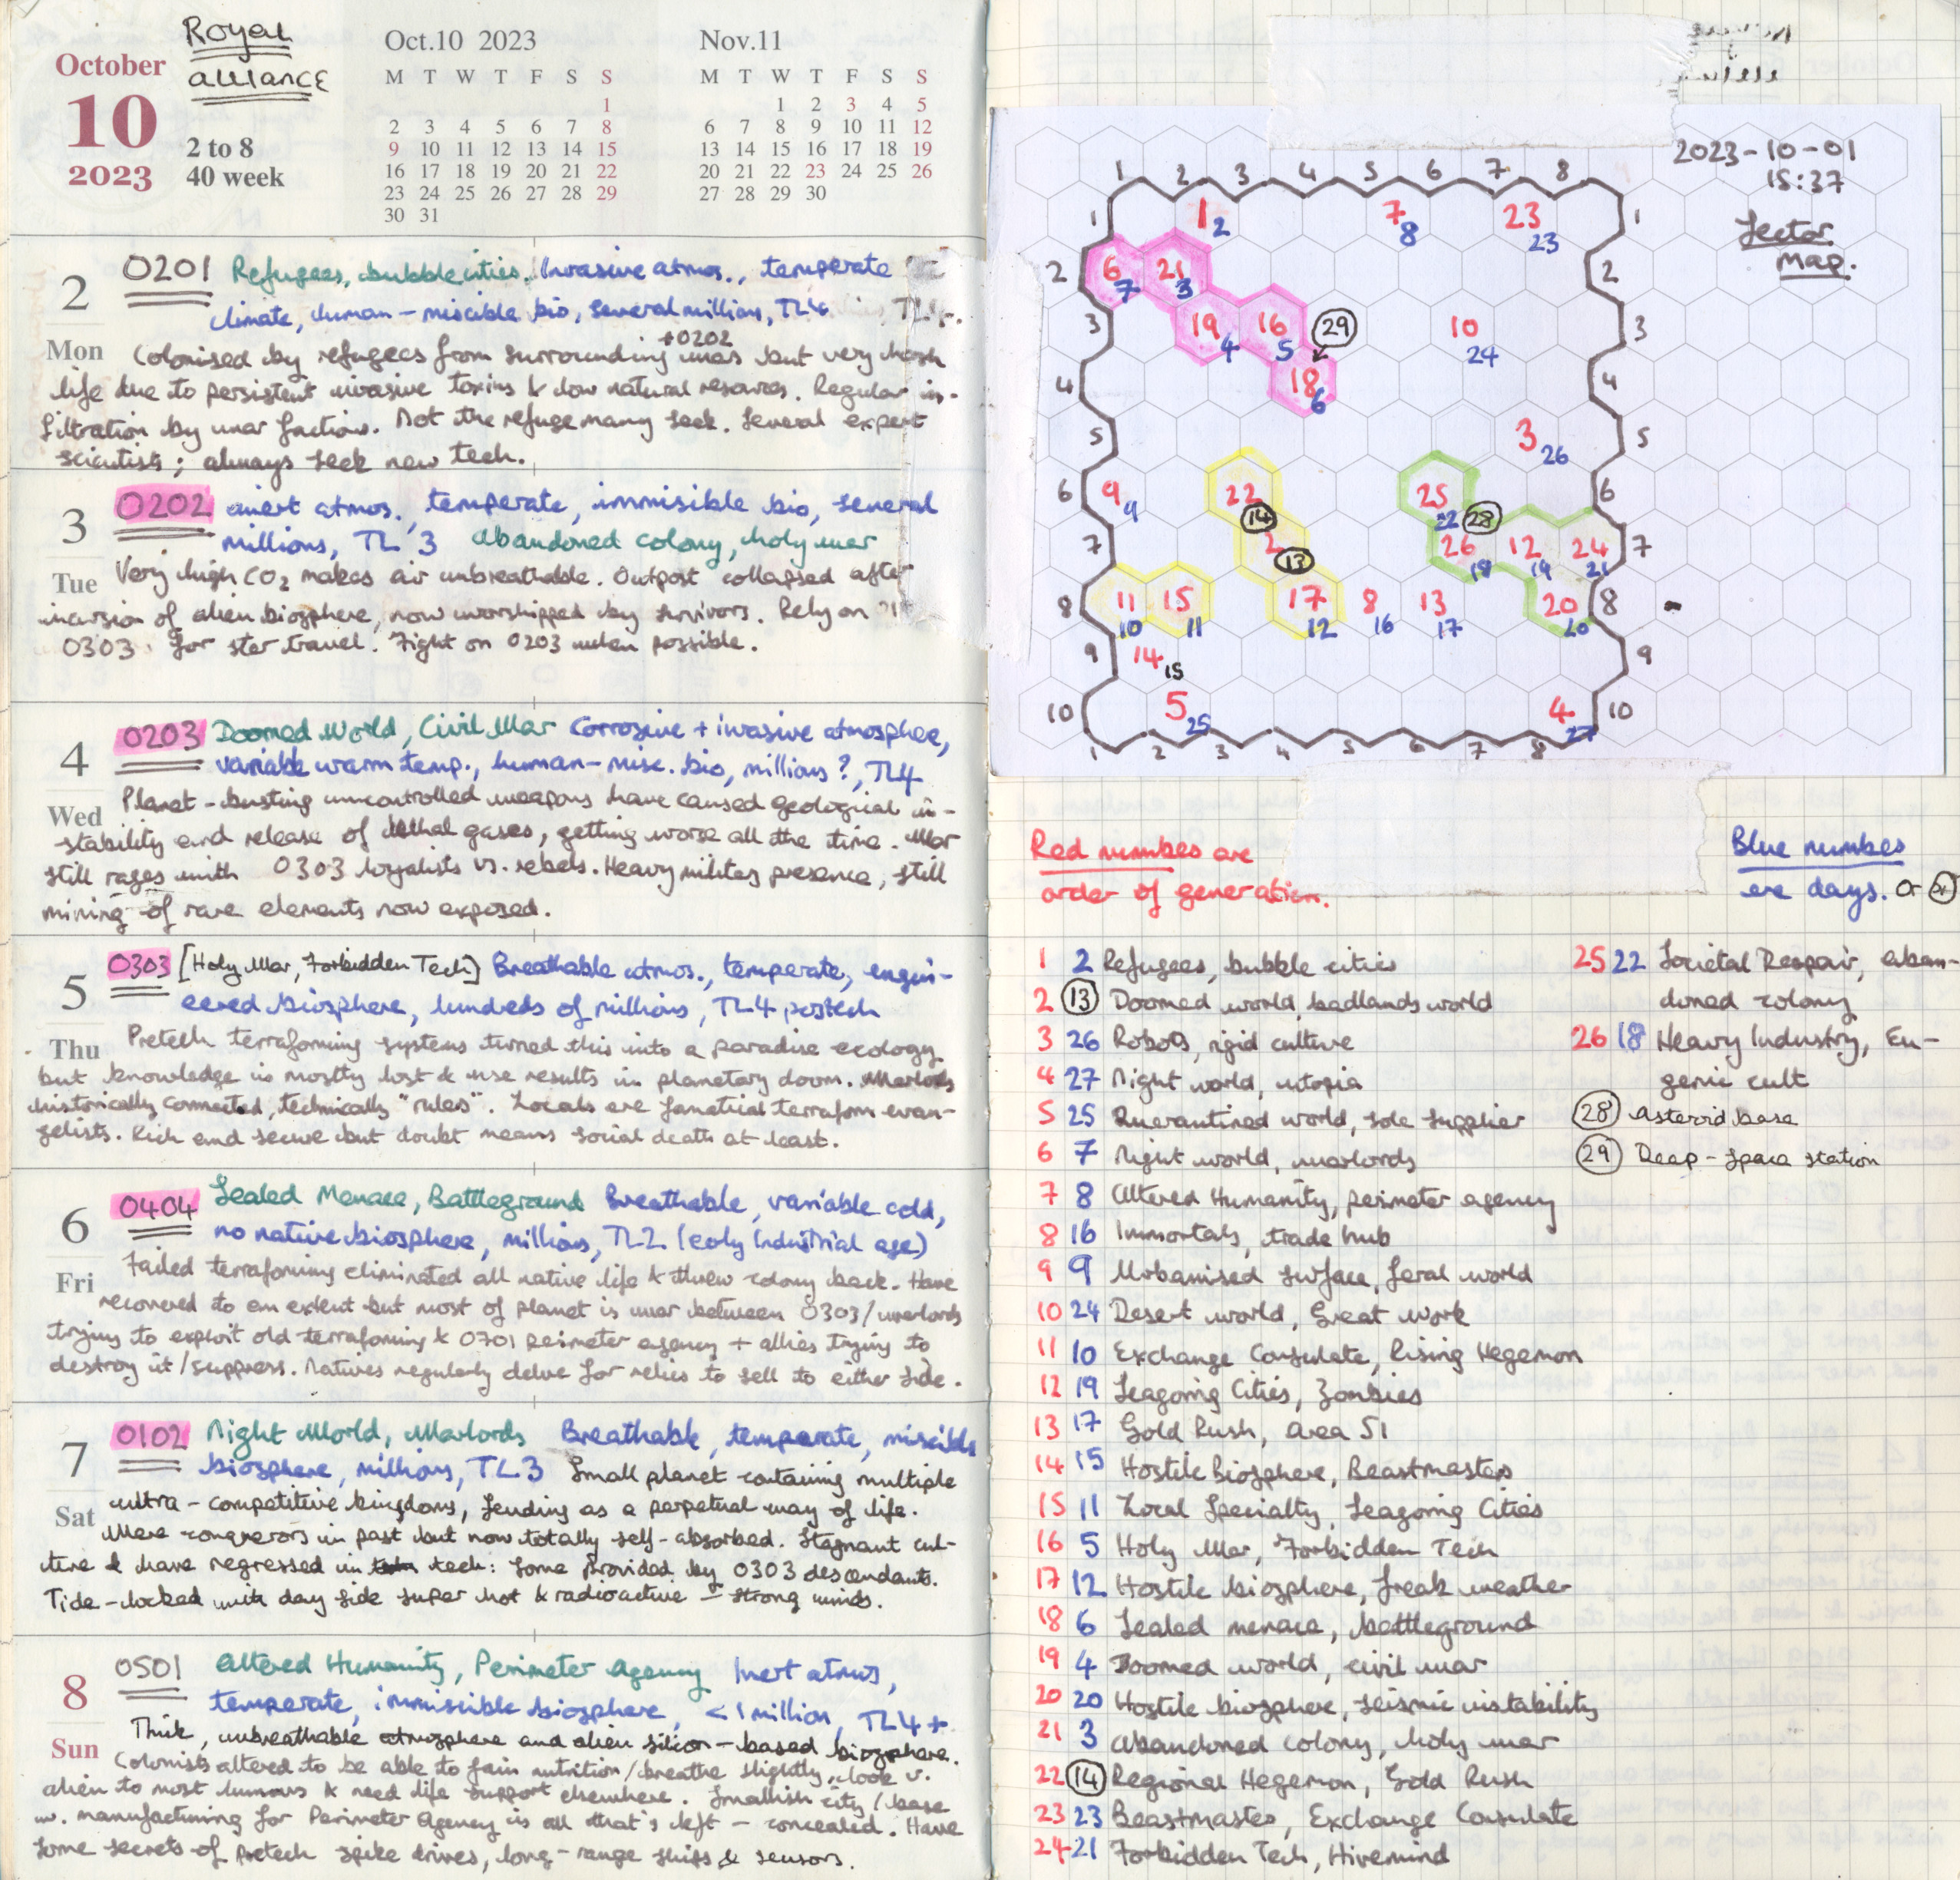 October
10
2023
Royal
alliance
2 to 8
40 week
Oct.10 2023
M T W T F S S
1
2 3 4 5 6 7 8
9 10 11 12 13 14 15
16 17 18 19 20 21 22
23 24 25 26 27 28 29
30 31
Nov.11
M T W T F S S
1 2 3 4 5
6 7 8 9 10 11 12
13 14 15 16 17 18 19
20 21 22 23 24 25 26
27 28 29 30
2
Mon
0201 Refugees, bubble cities. Invasive atmos., temperate
climate, human-miscible bio, several millions, TL4
+0202
Colonised by refugees from surrounding wars but very harsh
life due to persistent invasive toxins & low natural resources. Regular in-
filtration by war factions. Not the refuge many seek. Several expert
scientists; always seek new tech.
3
Tue
0202 inert atmos., temperate, immiscible bio, several
millions, TL 3 Abandoned colony, holy war
Very high CO2 makes air unbreathable. Outpost collapsed after
incursion of alien biosphere, now worshipped by survivors. Rely on
0303 for star travel. Fight on 0203 when possible.
4
Wed
0203 Doomed World, Civil War Corrosive + invasive atmosphere,
variable warm temp., human-misc. bio, millions?, TL4
Planet-busting uncontrolled weapons have caused geological in-
stability and release of lethal gases, getting worse all the time. War
still rages with 0303 loyalists vs. rebels. Heavy military presence, still
mining of rare elements now exposed.
5
Thu
0303 [Holy War, Forbidden Tech] Breathable atmos., temperate, engin-
eered biosphere, hundreds of millions, TL4 postech
Pretech terraforming systems turned this into a paradise ecology
but knowledge is mostly lost & use results in planetary doom. Warlords
historically connected, technically "rulers". Locals are fanatical terraform evan-
gelists. Rich and secure but doubt means social death at least.
6
Fri
0404 Sealed Menace, Battleground Breathable, variable cold,
no native biosphere, millions, TL2 (early Industrial age)
Failed terraforming eliminated all native life & threw colony back. Have
recovered to an extent but most of planet is war between 0303/warlords
trying to exploit old terraforming & 0701 perimeter agency + allies trying to
destroy it/suppress. Natives regularly delve for relics to sell to either side.
7
Sat
0102 Night World, Warlords Breathable, temperate, miscible
biosphere, millions, TL3 Small planet containing multiple
ultra-competitive kingdoms, feuding as a perpetual way of life.
Were conquerors in past but now totally self-absorbed. Stagnant cul-
ture & have regressed in tech: some provided by 0303 descendants.
Tide-locked with day side super hot & radioactive - strong winds.
8
Sun
0501 Altered Humanity, Perimeter Agency Inert atmos,
temperate, immiscible biosphere, <1 million, TL4+
Thick, unbreathable atmosphere and alien silicon-based biosphere.
Colonists altered to be able to gain nutrition/breathe slightly, look v.
alien to most humans & need life support elsewhere. Smallish city/base
w. manufacturing for Perimeter Agency is all that's left - concealed. Have
some secrets of pretech spike drives, long-range ships & sensors.
2023-10-01
15:37
Sector
Map.
1 2 3 4 5 6 7 8
1 1 2 7 8 23 23 1
2 6 7 21 3 2
3 19 4 16 5 29 10 24 3
4 18 6 4
5 3 26 5
6 9 9 22 14 25 22 28 6
7 2 13 26 18 12 19 24 21 7
8 11 10 15 11 17 12 8 16 13 17 20 20 8
9 14 15 9
10 5 25 4 27 10
1 2 3 4 5 6 7 8
Red numbers are
order of generation.
Blue numbers
are days. Or
1 2 Refugees, bubble cities
2 13 Doomed world, badlands world
3 26 Robots, rigid culture
4 27 Night world, utopia
5 25 Quarantined world, sole supplier
6 7 Night world, warlords
7 8 Altered Humanity, perimeter agency
8 16 Immortals, trade hub
9 9 Urbanised surface, feral world
10 24 Desert world, Great Work
11 10 Exchange Consulate, Rising Hegemon
12 19 Seagoing Cities, Zombies
13 17 Gold Rush, Area 51
14 15 Hostile Biosphere, Beastmasters
15 11 Local Specialty, Seagoing Cities
16 5 Holy War, Forbidden Tech
17 12 Hostile biosphere, freak weather
18 6 Sealed menace, battleground
19 4 Doomed world, civil war
20 20 Hostile biosphere, seismic instability
21 3 Abandoned colony, holy war
22 14 Regional Hegemon, Gold Rush
23 23 Beastmaster, Exchange Consulate
24 21 Forbidden Tech, Hivemind
25 22 Societal Despair, aban-
doned colony
26 18 Heavy Industry, Eu-
genic cult
28 Asteroid base
29 Deep-space station